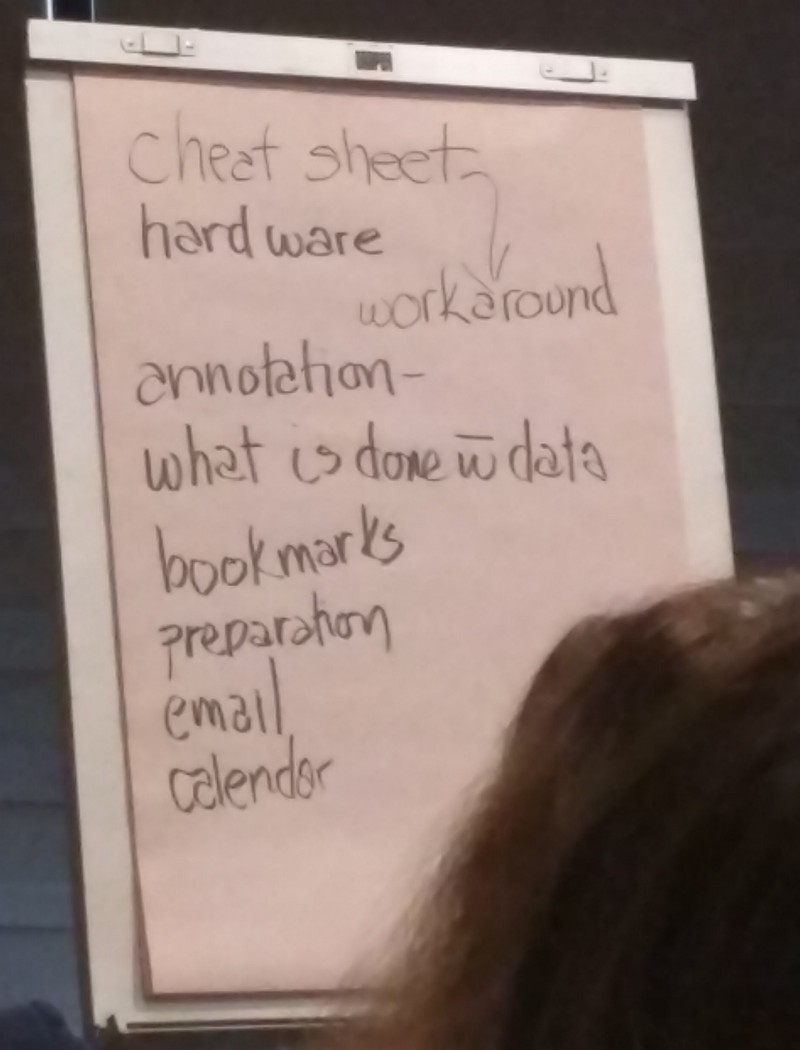 cheat sheet
hardware
workaround
annotation-
what is done w̄ data
bookmarks
preparation
email
calendar